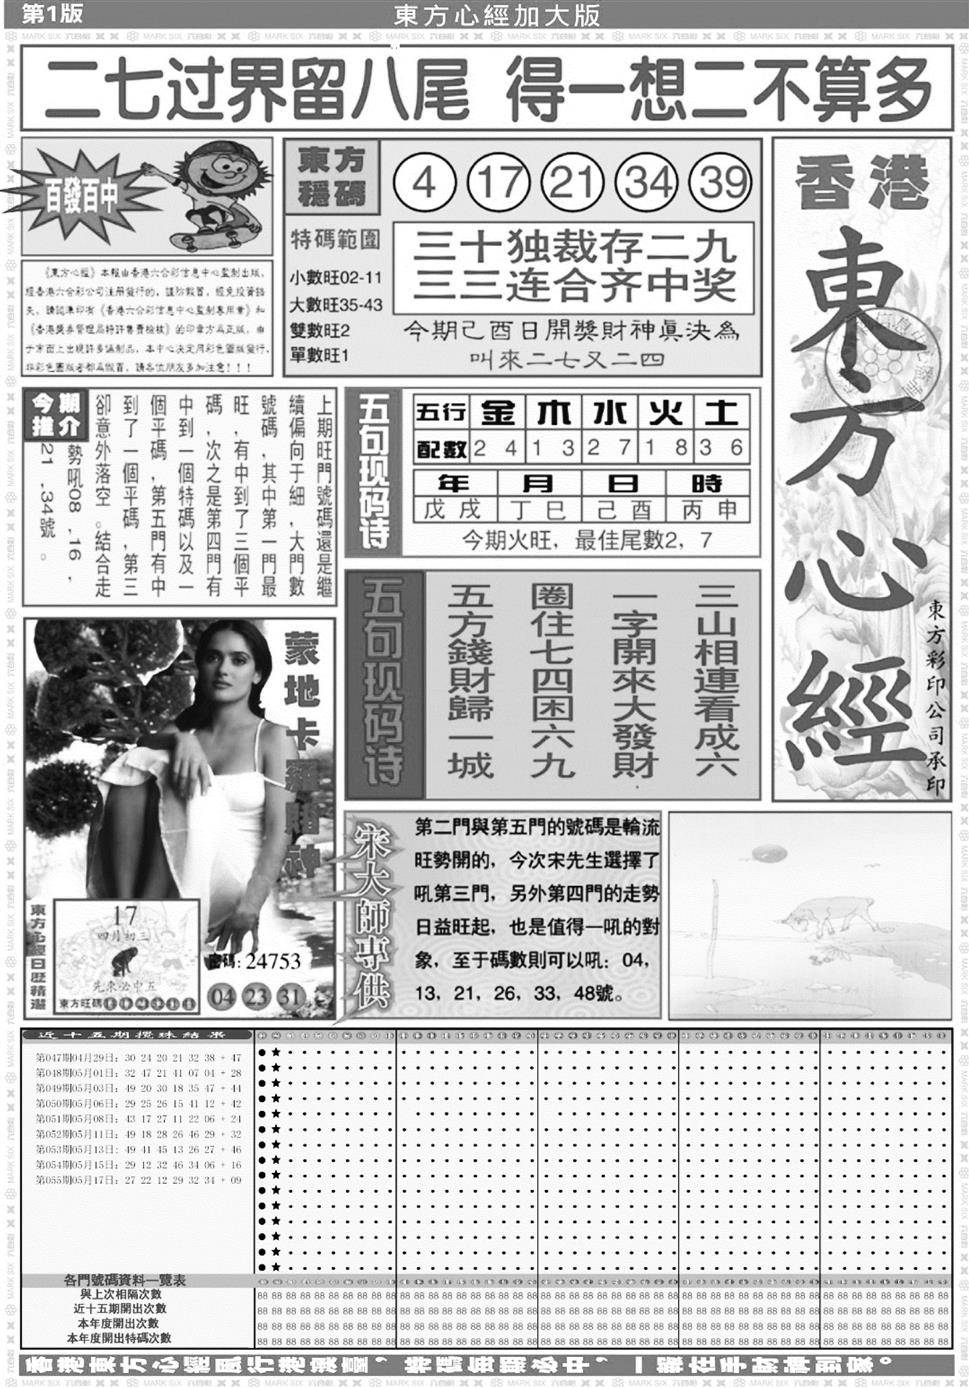 第1版
東方心經加大版
二七过界留八尾 得一想二不算多
百發百中
《東方心經》本報由香港六合彩信息中心監制出版，
經香港六合彩公司注册發行的，謹防假冒，經免投資錯
失，請認準印有《香港六合彩信息中心監制專用章》和
《香港獎券管理局特許售賣檢核》的印章方爲正版，由
于市面上出現許多僞制品，本中心决定用彩色圖版發行，
非彩色圖版者都爲假冒，請各位朋友多加注意！！！
東方
穩碼
4 17 21 34 39
特碼範圍
小數旺02-11
大數旺35-43
雙數旺2
單數旺1
三十独裁存二九
三三连合齐中奖
今期己酉日開獎財神真決為
叫來二七又二四
香港
東方心經
東方彩印公司承印
今期
推介
上期旺門號碼還是繼
續偏向于細，大門數
號碼，其中第一門最
旺，有中到了三個平
碼，次之是第四門有
中到一個特碼以及一
個平碼，第五門有中
到了一個平碼，第三
卻意外落空。結合走
勢吼08，16，
21，34號。
五句现码诗
五行 金 木 水 火 土
配數 2 4 1 3 2 7 1 8 3 6
年 月 日 時
戊戌 丁巳 己酉 丙申
今期火旺，最佳尾數2，7
五句现码诗
三山相連看成六
一字開來大發財
圈住七四困六九
五方錢財歸一城
蒙地卡羅賭神
東方心經日歷精選
17
四月初三
先來必中五
東方旺碼
密碼：24753
04 23 31
宋大師專供
第二門與第五門的號碼是輪流
旺勢開的，今次宋先生選擇了
吼第三門，另外第四門的走勢
日益旺起，也是值得一吼的對
象，至于碼數則可以吼：04，
13，21，26，33，48號。
近十五期攪珠結果
第047期04月29日：30 24 20 21 32 38 + 47
第048期05月01日：32 47 21 41 07 04 + 28
第049期05月03日：49 20 30 18 35 47 + 44
第050期05月06日：29 25 26 15 41 12 + 42
第051期05月08日：43 17 27 11 22 06 + 24
第052期05月11日：49 18 28 26 46 29 + 32
第053期05月13日：49 41 45 13 26 27 + 46
第054期05月15日：29 12 32 46 34 06 + 16
第055期05月17日：27 22 12 29 32 34 + 09
各門號碼資料一覽表
與上次相隔次數
近十五期開出次數
本年度開出次數
本年度開出特碼次數
香港東方心經風行港澳臺，特碼每期必中，一版在手財神到家。